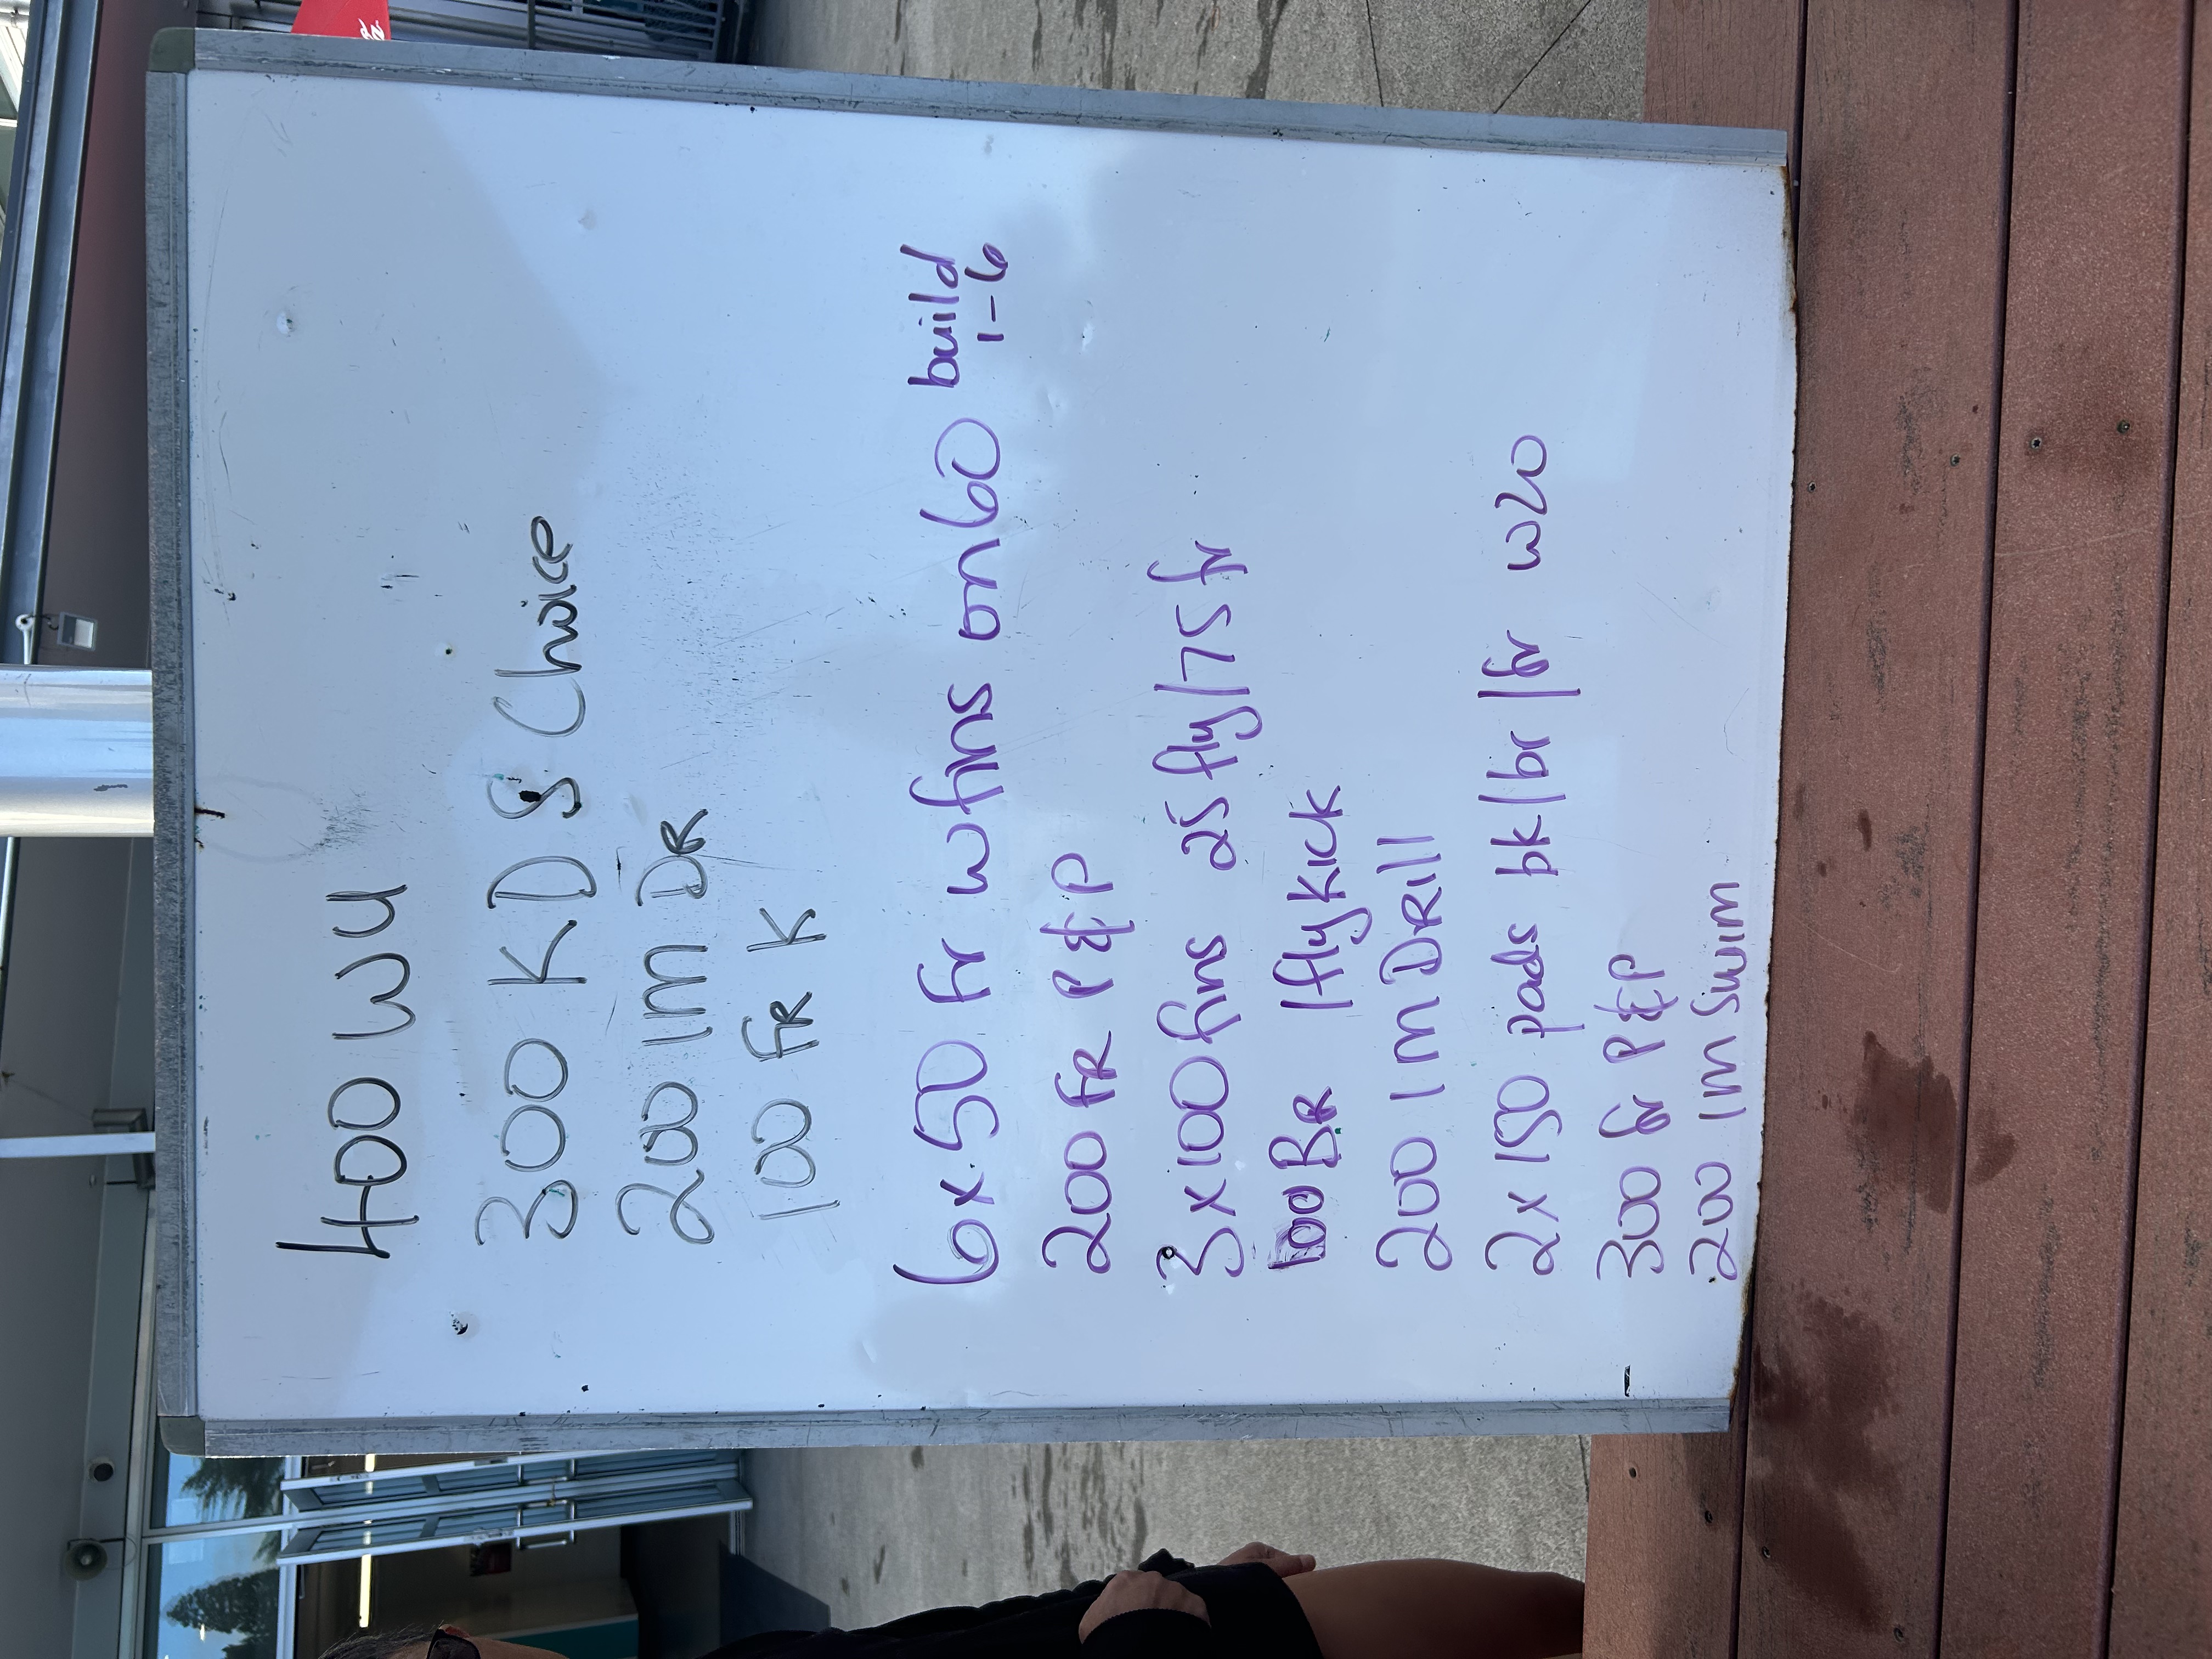 400 WU
300 K D S Choice
200 IM DR
100 FR K
6x50 fr w fins on 60 build 1-6
200 FR P&P
3x100 fins 25 fly/75 fr
100 BR / fly kick
200 IM DRill
2x150 pads bk/br/fr w20
300 fr P&P
200 IM Swim